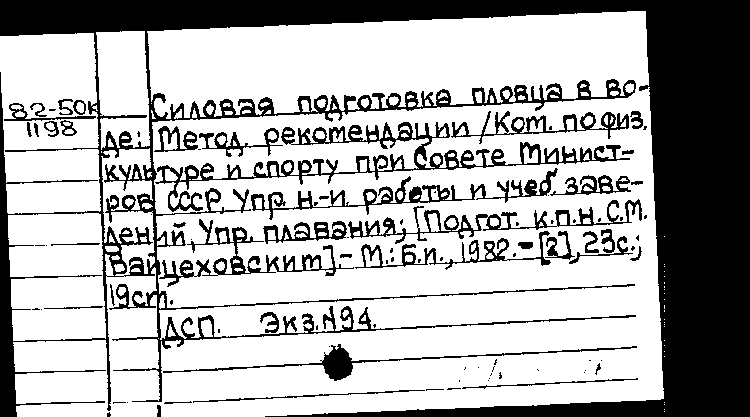 82-50к
1198
Силовая подготовка пловца в во-
де: Метод. рекомендации /Ком. по физ.
культуре и спорту при Совете Минист-
ров СССР, Упр. н.-и. работы и учеб. заве-
дений, Упр. плавания; [Подгот. к.п.н. С.М.
Вайцеховским].- М.: Б.и., 1982.- [2], 23с.;
19см.
ДСП. Экз.№94.